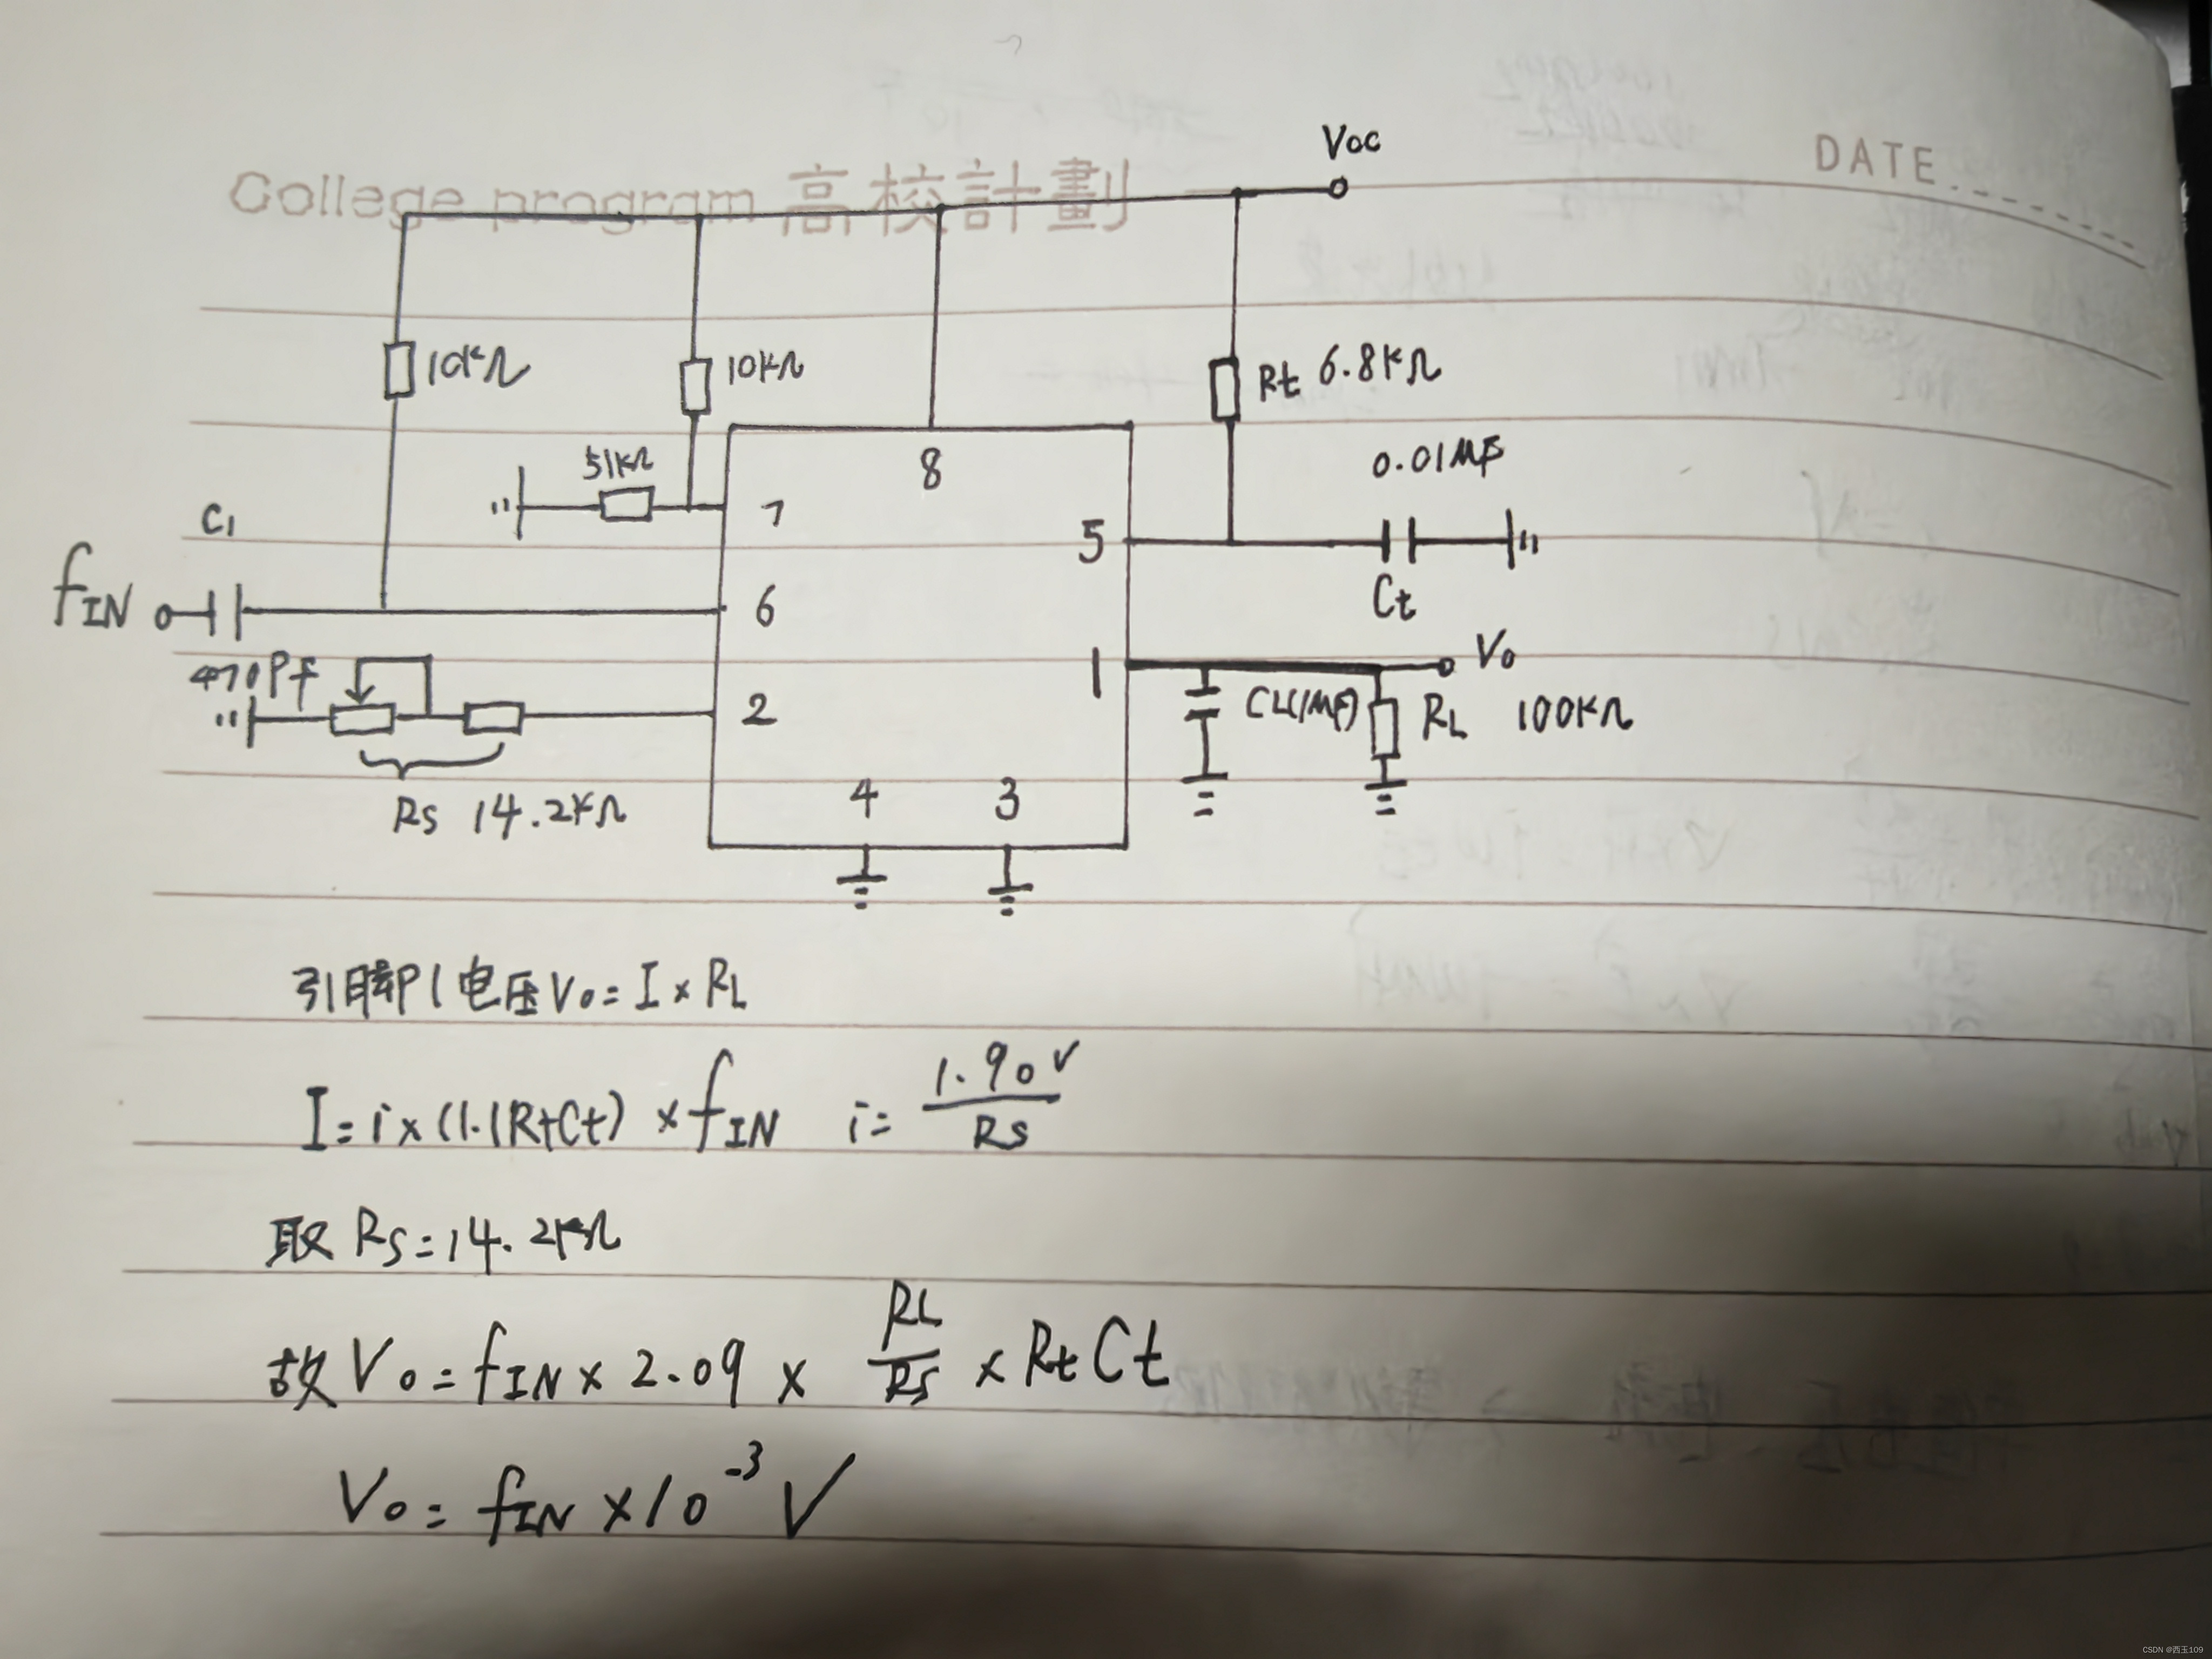 College program 高校計劃
DATE
Vcc
10KΩ
10KΩ
Rt 6.8KΩ
51KΩ
0.01MF
8
7
5
C1
fIN
6
Ct
470Pf
1
Vo
2
CL(1MF)
RL 100KΩ
4
3
Rs 14.2KΩ
引脚P1电压Vo=I×RL
I=i×(1.1RtCt)×fIN i=1.90V/Rs
取 Rs=14.2KΩ
故 Vo=fIN×2.09×RL/Rs×RtCt
Vo=fIN×10⁻³V
CSDN @西玉109